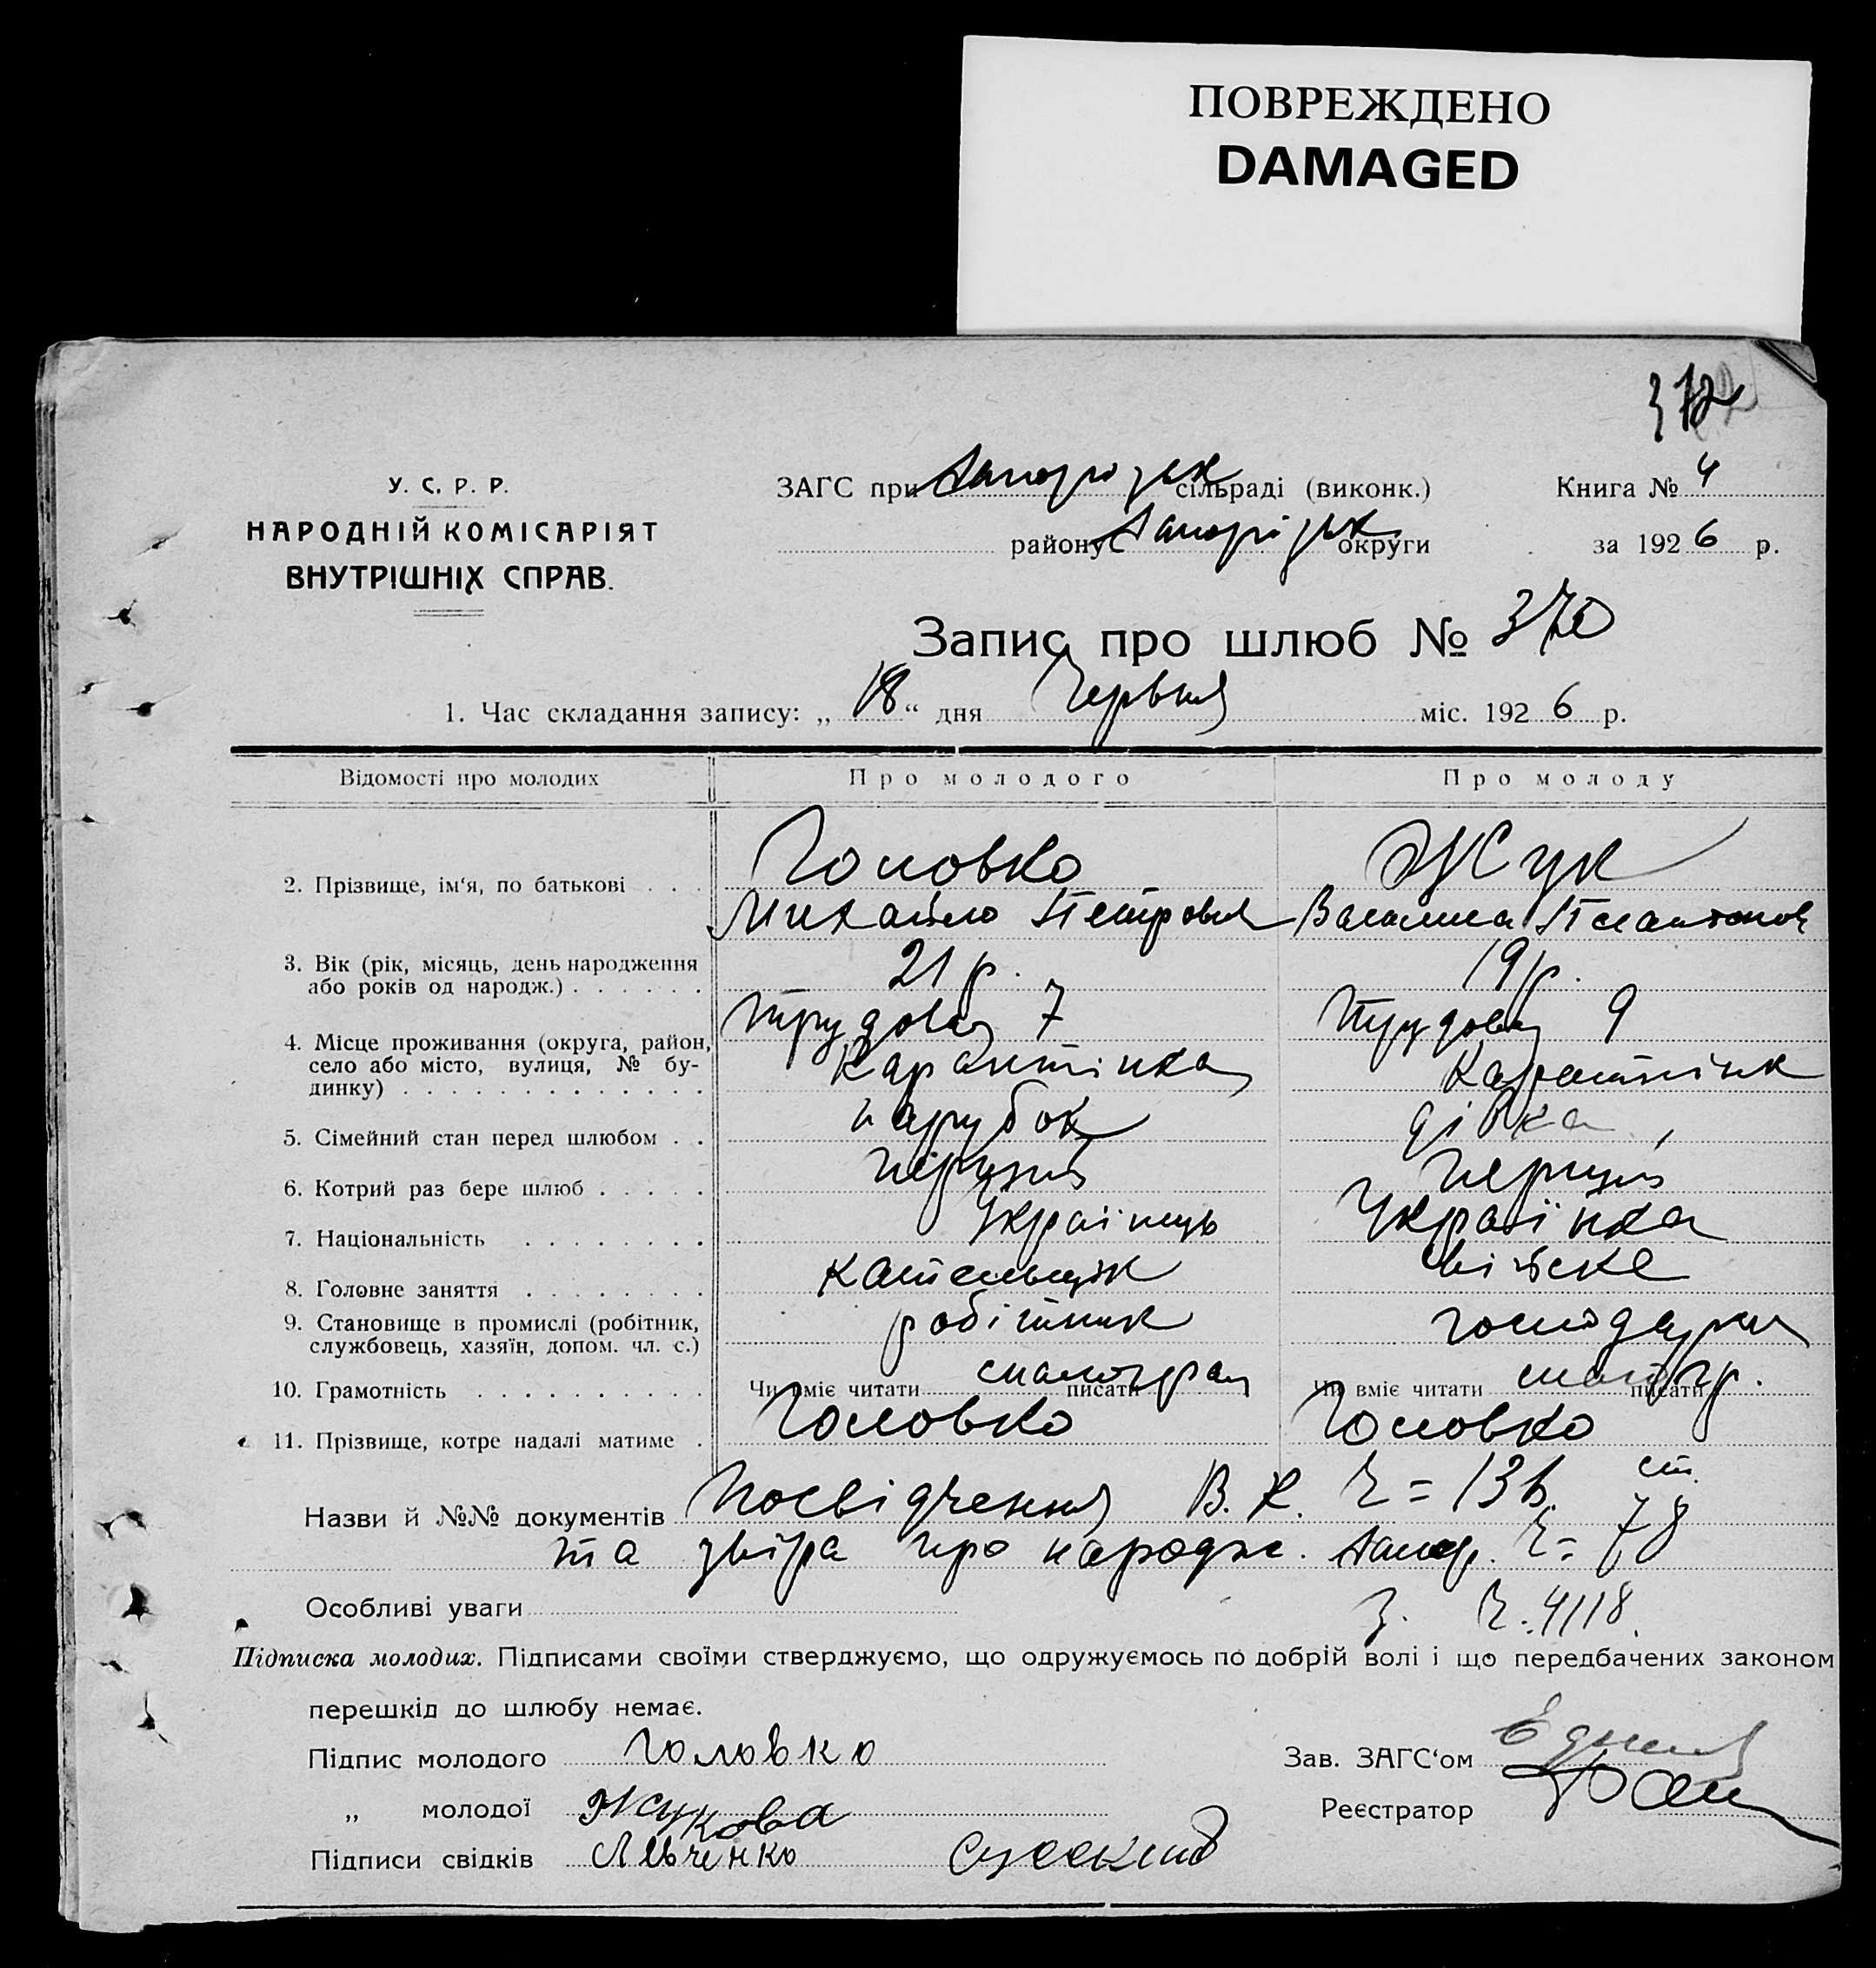 ПОВРЕЖДЕНО
DAMAGED
У. С. Р. Р.
НАРОДНІЙ КОМІСАРІЯТ
ВНУТРІШНІХ СПРАВ.
ЗАГС при Запорізьк сільраді (виконк.)
Книга № 4
району Запорізьк округи
за 1926 р.
Запис про шлюб № 370
1. Час складання запису: „18“ дня Червня міс. 1926 р.
Відомості про молодих Про молодого Про молоду
2. Прізвище, ім‘я, по батькові . . . Головко Жук
Михайло Петрович Василиса Платонов
3. Вік (рік, місяць, день народження 21 р. 19 р.
або років од народж.) . . . . . .
4. Місце проживання (округа, район, Трудова 7 Трудова 9
село або місто, вулиця, № бу- Карантінка Карантінк
динку) . . . . . . . . . . . . .
5. Сімейний стан перед шлюбом . . парубок дівка
6. Котрий раз бере шлюб . . . . . перший перший
7. Національність . . . . . . . . Українець Українка
8. Головне заняття . . . . . . . .
9. Становище в промислі (робітник, робітник господарка
службовець, хазяїн, допом. чл. с.)
10. Грамотність . . . . . . . . . . Чи вміє читати писати Чи вміє читати писати
11. Прізвище, котре надалі матиме . Головко Головко
Назви й №№ документів Посвідчення В. К. Ч = 13
та про народж. Запор. Ч = 78
Особливі уваги Ч. 4118
Підписка молодих. Підписами своїми стверджуємо, що одружуємось по добрій волі і що передбачених законом
перешкід до шлюбу немає.
Підпис молодого Головко
Зав. ЗАГС‘ом
„ молодої Жукова
Реєстратор
Підписи свідків Левченко